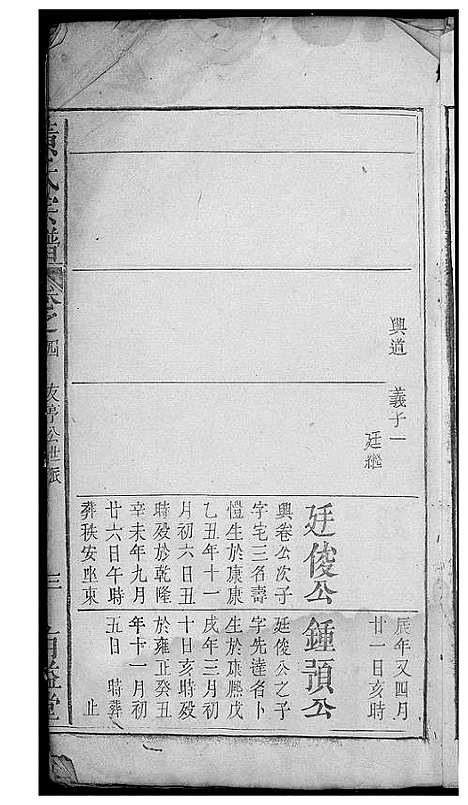 興道　義子一
廷繼
廷俊公
興卷公次子
字宅三名壽
愷生於康康
乙丑年十一
月初六日丑
時殁於乾隆
辛未年九月
廿六日午時
葬秩安坐東
辰年又四月
廿一日亥時
鍾預公
廷俊公之子
字先達名卜
生於康熙戊
戌年三月初
十日亥時殁
於雍正癸丑
年十一月初
五日　時葬
止
氏宗譜
卷之四
友亭公世派
三